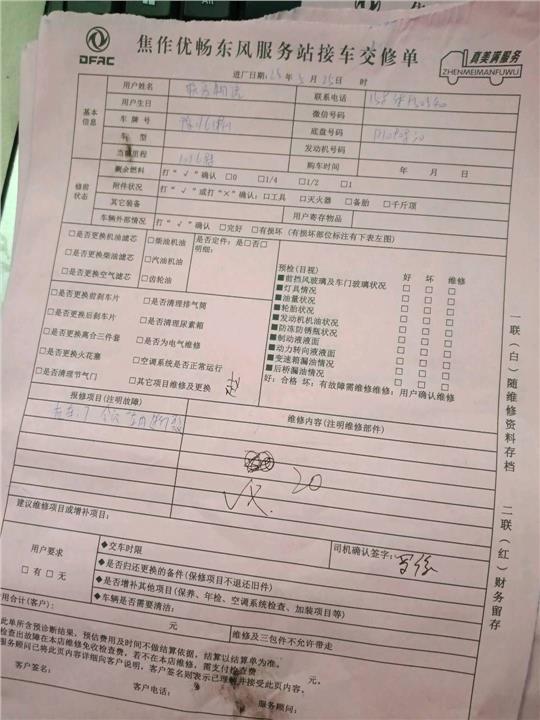 DFAC
焦作优畅东风服务站接车交修单
真美满服务
ZHENMEIMANFUWU
进厂日期: 年 月 25日 时
基本信息
用户姓名 联系电话
用户生日 微信号码
车牌号 底盘号码
车型 发动机号码
当前里程 购车时间 年 月 日
修前状态
剩余燃料 打“√”确认 □0 □1/4 □1/2 □1
附件状况 打“√”或打“×”确认:□工具 □灭火器 □备胎 □千斤顶
其它装备 用户寄存物品
车辆外部情况 打“√”确认 □完好 □有损坏(有损坏部位标注有下表左图)
□是否更换机油滤芯 □柴油机油 是否定件:是□否□
□是否更换柴油滤芯 □汽油机油 明细:
□是否更换空气滤芯 □齿轮油
□是否更换前刹车片 □是否清理排气筒
□是否更换后刹车片 □是否清理尿素箱
□是否更换离合三件套 □是否为电气维修
□是否更换火花塞 □空调系统是否正常运行
□是否清理节气门 □其它项目维修及更换
预检(目视) 好 坏 维修
■前挡风玻璃及车门玻璃状况 □ □ □
■灯具情况 □ □ □
■油量状况 □ □ □
■轮胎状况 □ □ □
■发动机机油状况 □ □ □
■防冻防锈瓶状况 □ □ □
■制动液液面 □ □ □
■动力转向液液面 □ □ □
■变速箱漏油情况 □ □ □
■后桥漏油情况 □ □ □
好:合格 坏:有故障需维修维修:用户确认维修
报修项目(注明故障) 维修内容(注明维修部件)
20
建议维修项目或增补项目:
用户要求
□有 □无
◆交车时限 司机确认签字:
◆是否归还更换的备件(保修项目不退还旧件)
◆是否增补其他项目(保养、年检、空调系统检查、加装项目等)
◆车辆是否需要清洁:
用合计(客户): 元 维修及三包件不允许带走
此单所含预诊断结果,预估费用及时间不做结算依据,结算以结算单为准。
检查出故障在本店维修免收检查费,若不在本店维修,需支付检查费 元。
服务顾问已将此页内容详细向客户说明,客户签名则表示已理解并接受此页内容。
客户签名: 客户电话: 服务顾问:
一联(白)随维修资料存档
二联(红)财务留存